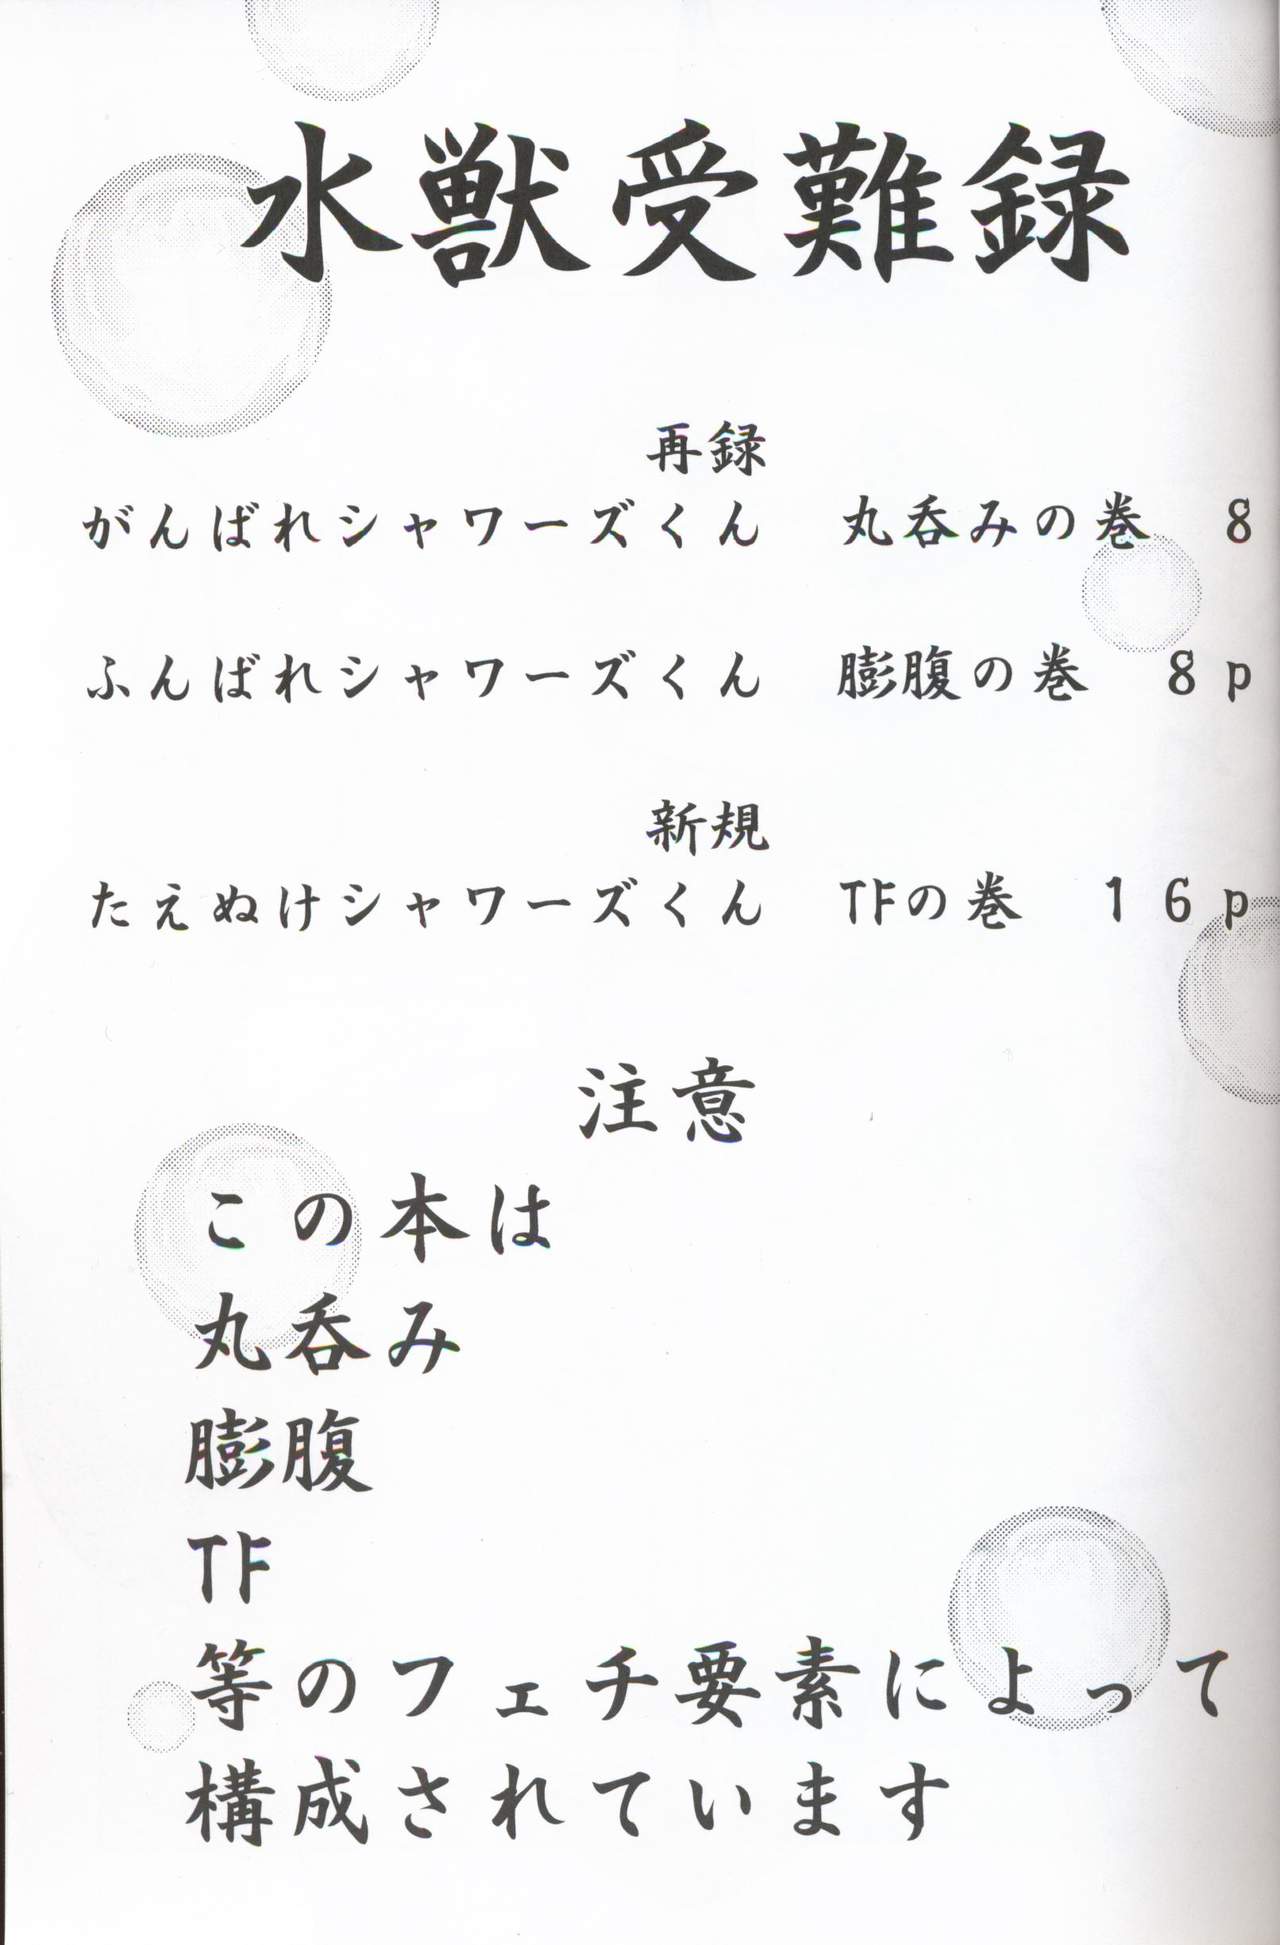 水獣受難録
再録
がんばれシャワーズくん　丸呑みの巻　8
ふんばれシャワーズくん　膨腹の巻　8p
新規
たえぬけシャワーズくん　TFの巻　16p
注意
この本は
丸呑み
膨腹
TF
等のフェチ要素によって
構成されています